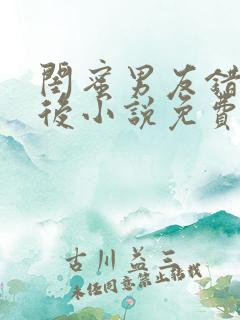 閨蜜男友錯
後小說免費
古川益三
未任同意禁止搭載